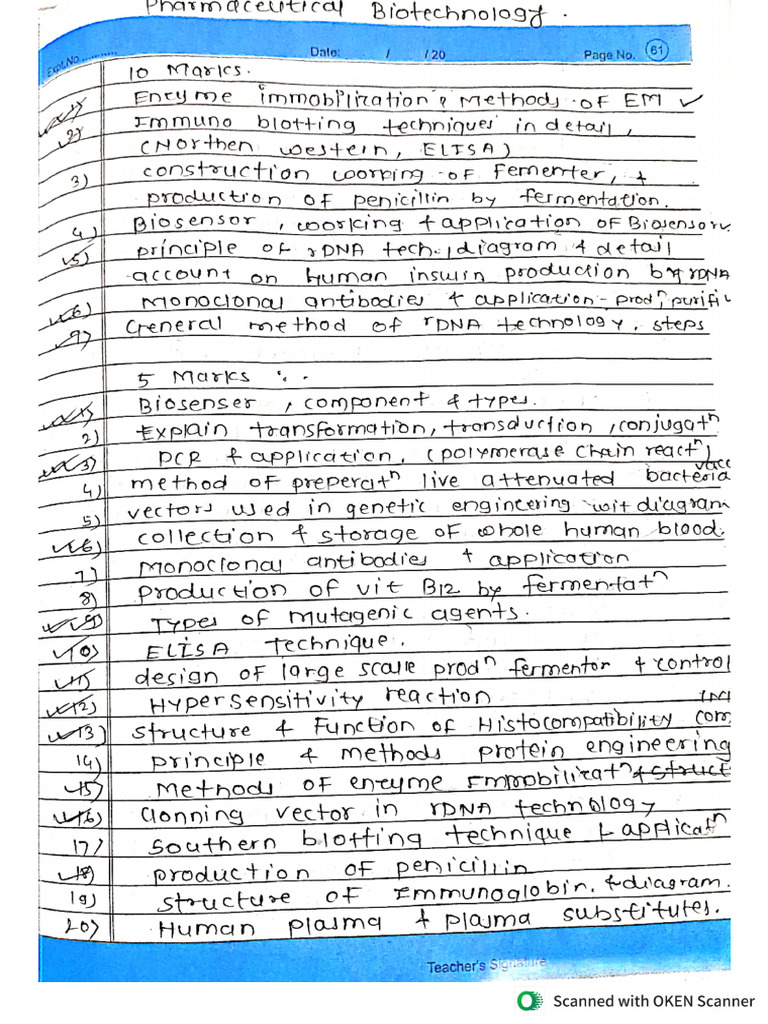 Pharmaceutical Biotechnology.
Expt.No.......... Date: / /20 Page No. 61
10 Marks.
1) Enzyme immobilization & Methods of EM ✓
2) Immuno blotting techniques in detail,
(Northen western, ELISA)
3) construction working of Fementer, +
production of penicillin by fermentation.
4) Biosensor, working + application of Biosensor
5) principle of rDNA tech., diagram & detail
account on human insulin production by rDNA
6) Monoclonal antibodies + application - prodⁿ, purifi
7) General method of rDNA technology, steps
5 Marks :-
1) Biosenser, component & types.
2) Explain transformation, transduction, conjugatⁿ
3) PCR & application, (polymerase chain reactⁿ)
4) method of preperatⁿ live attenuated bacteria vacc
5) vectors used in genetic engineering wit diagram
6) collection & storage of whole human blood.
7) Monoclonal antibodies + application
8) production of vit B12 by fermentatⁿ
9) Types of mutagenic agents.
10) ELISA Technique.
11) design of large scale prodⁿ fermentor & control
12) Hypersensitivity reaction
13) Structure & Function of Histocompatibility com
14) principle & methods protein engineering
15) Methods of enzyme Immobilizatⁿ & struct
16) Clonning vector in rDNA technology
17) Southern blotting technique + applicatⁿ
18) production of penicillin
19) structure of Immunoglobin. & diagram.
20) Human plasma + plasma substitutes.
Teacher's Signature
Scanned with OKEN Scanner